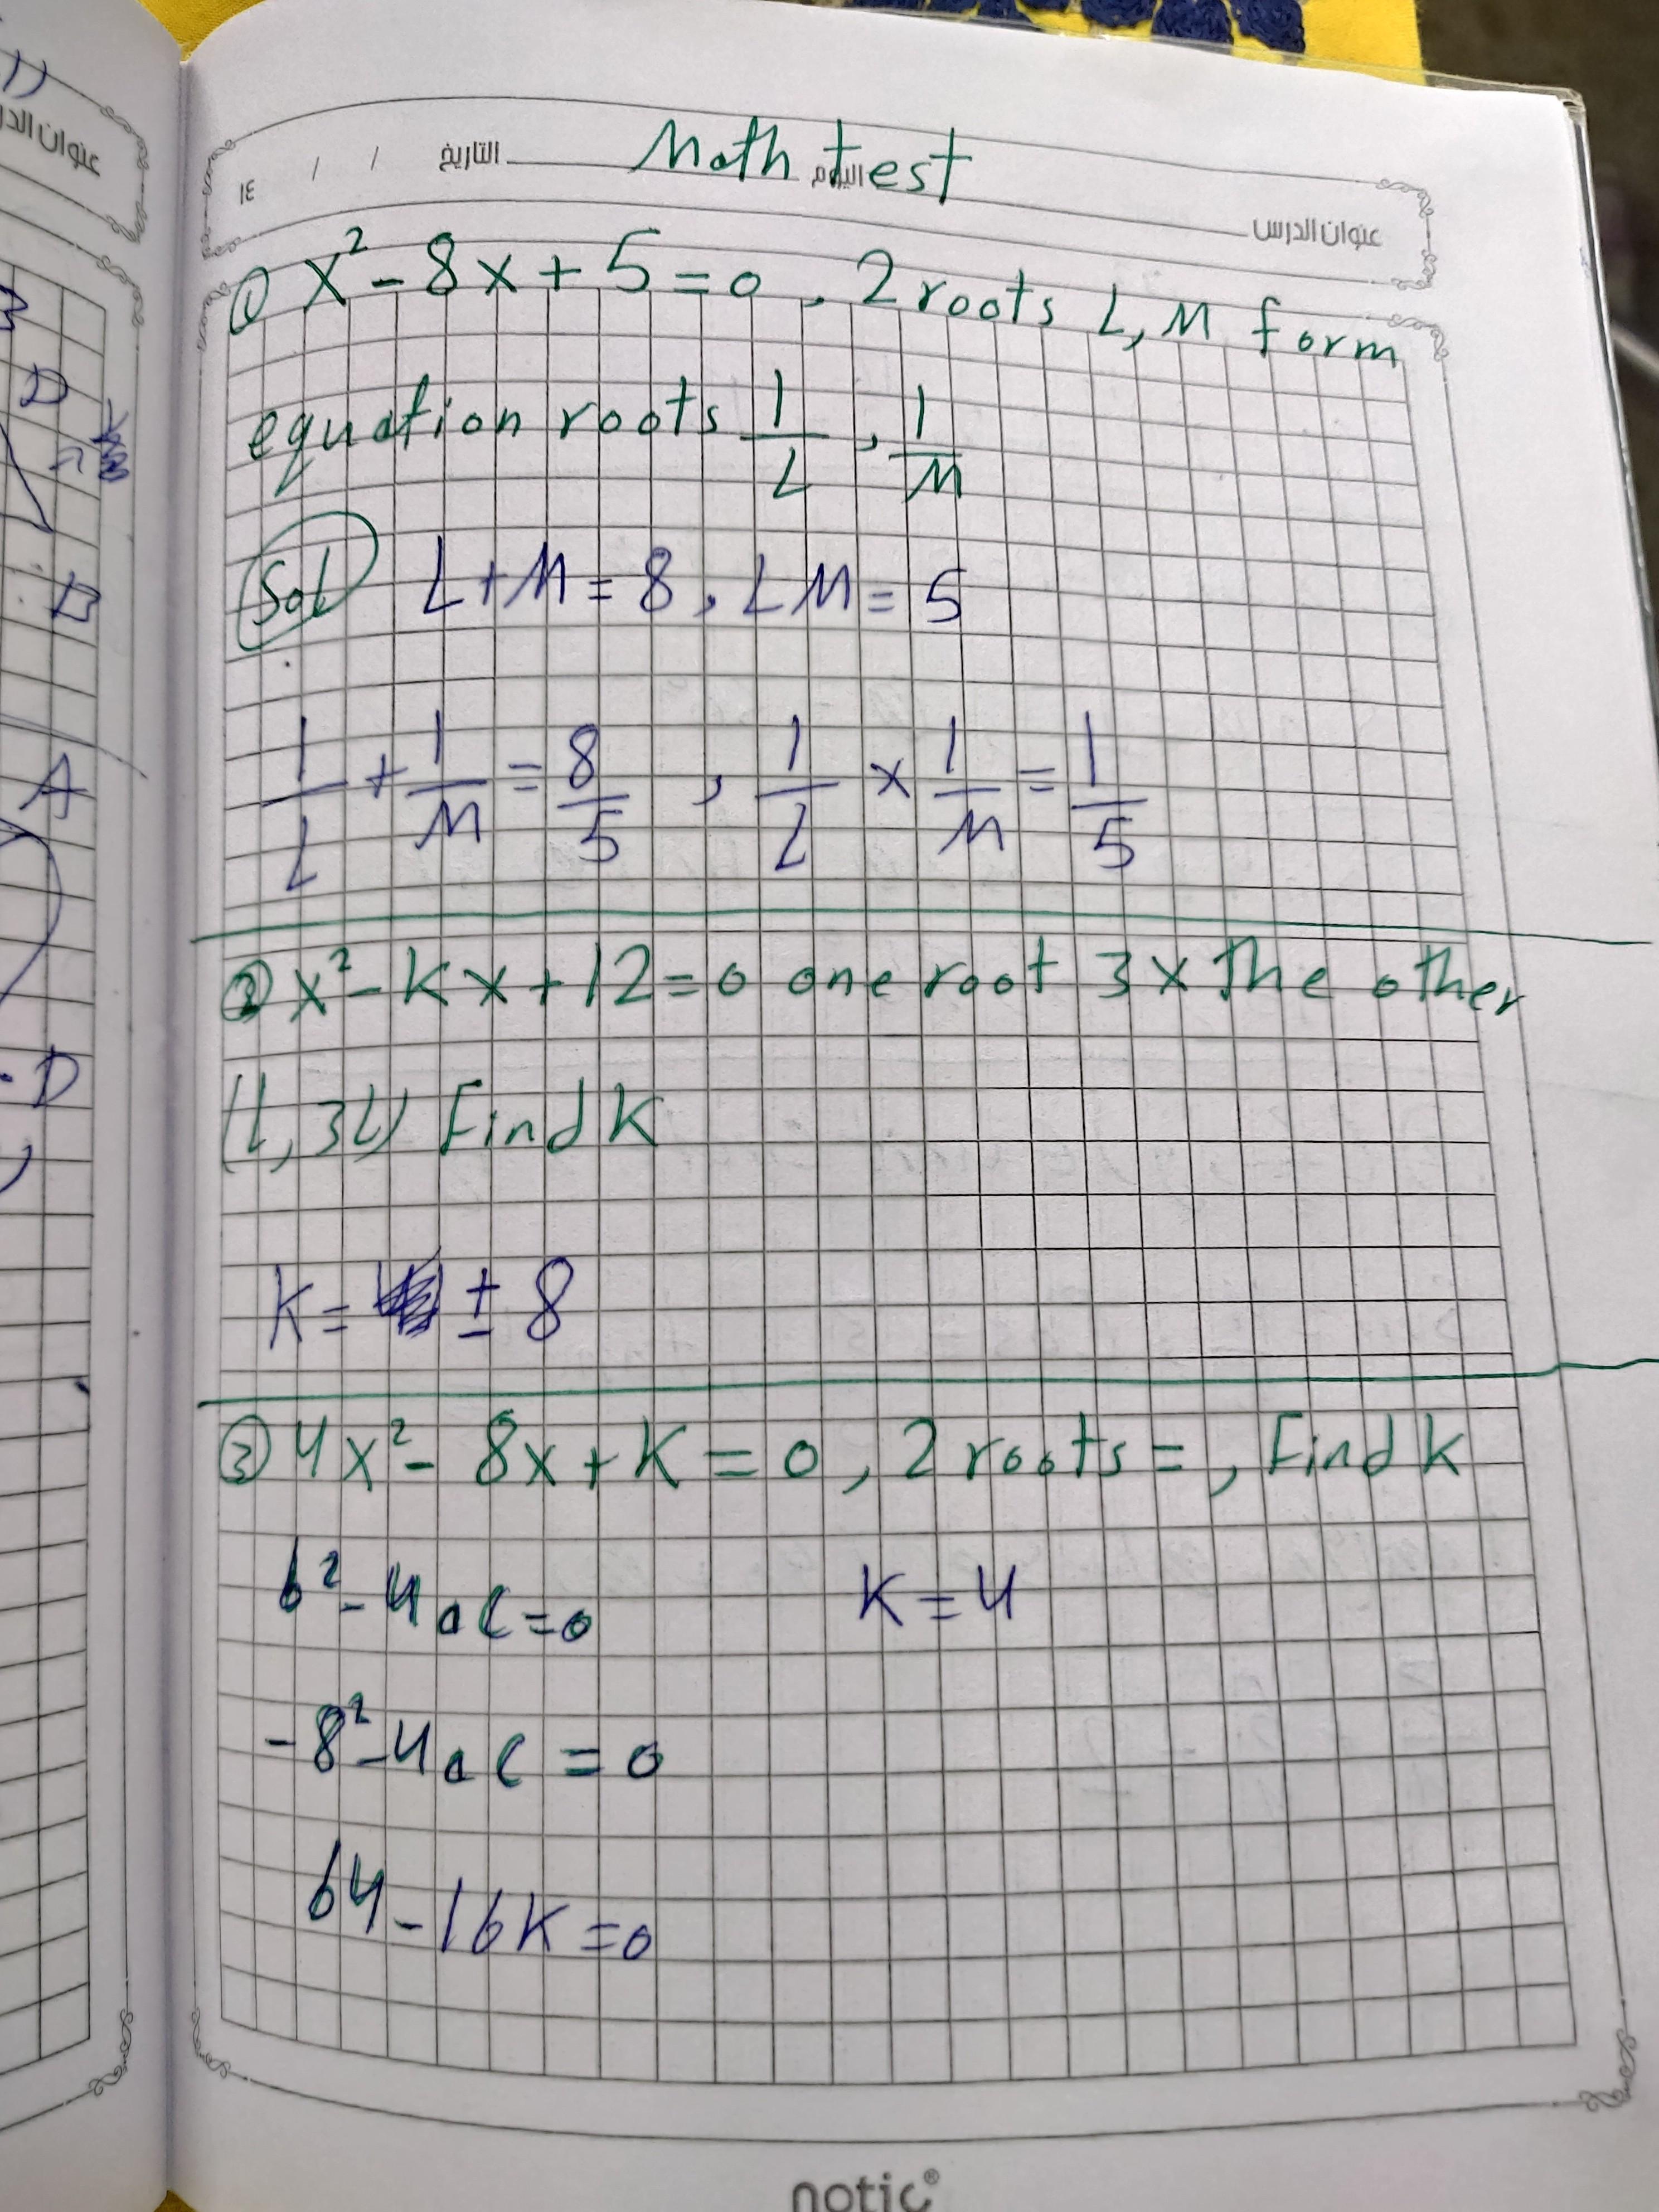 عنوان الدر
A
D
Math test
١٤ / / التاريخ اليوم
عنوان الدرس
① x² - 8x + 5 = 0 , 2 roots L, M form
equation roots 1/L , 1/M
Sol L + M = 8 , LM = 5
1/L + 1/M = 8/5 , 1/L × 1/M = 1/5
② x² - kx + 12 = 0 one root 3x the other
(L, 3L) Find k
k = ± 8
③ 4x² - 8x + k = 0 , 2 roots = , Find k
b² - 4ac = 0 k = 4
-8² - 4ac = 0
64 - 16k = 0
notic®